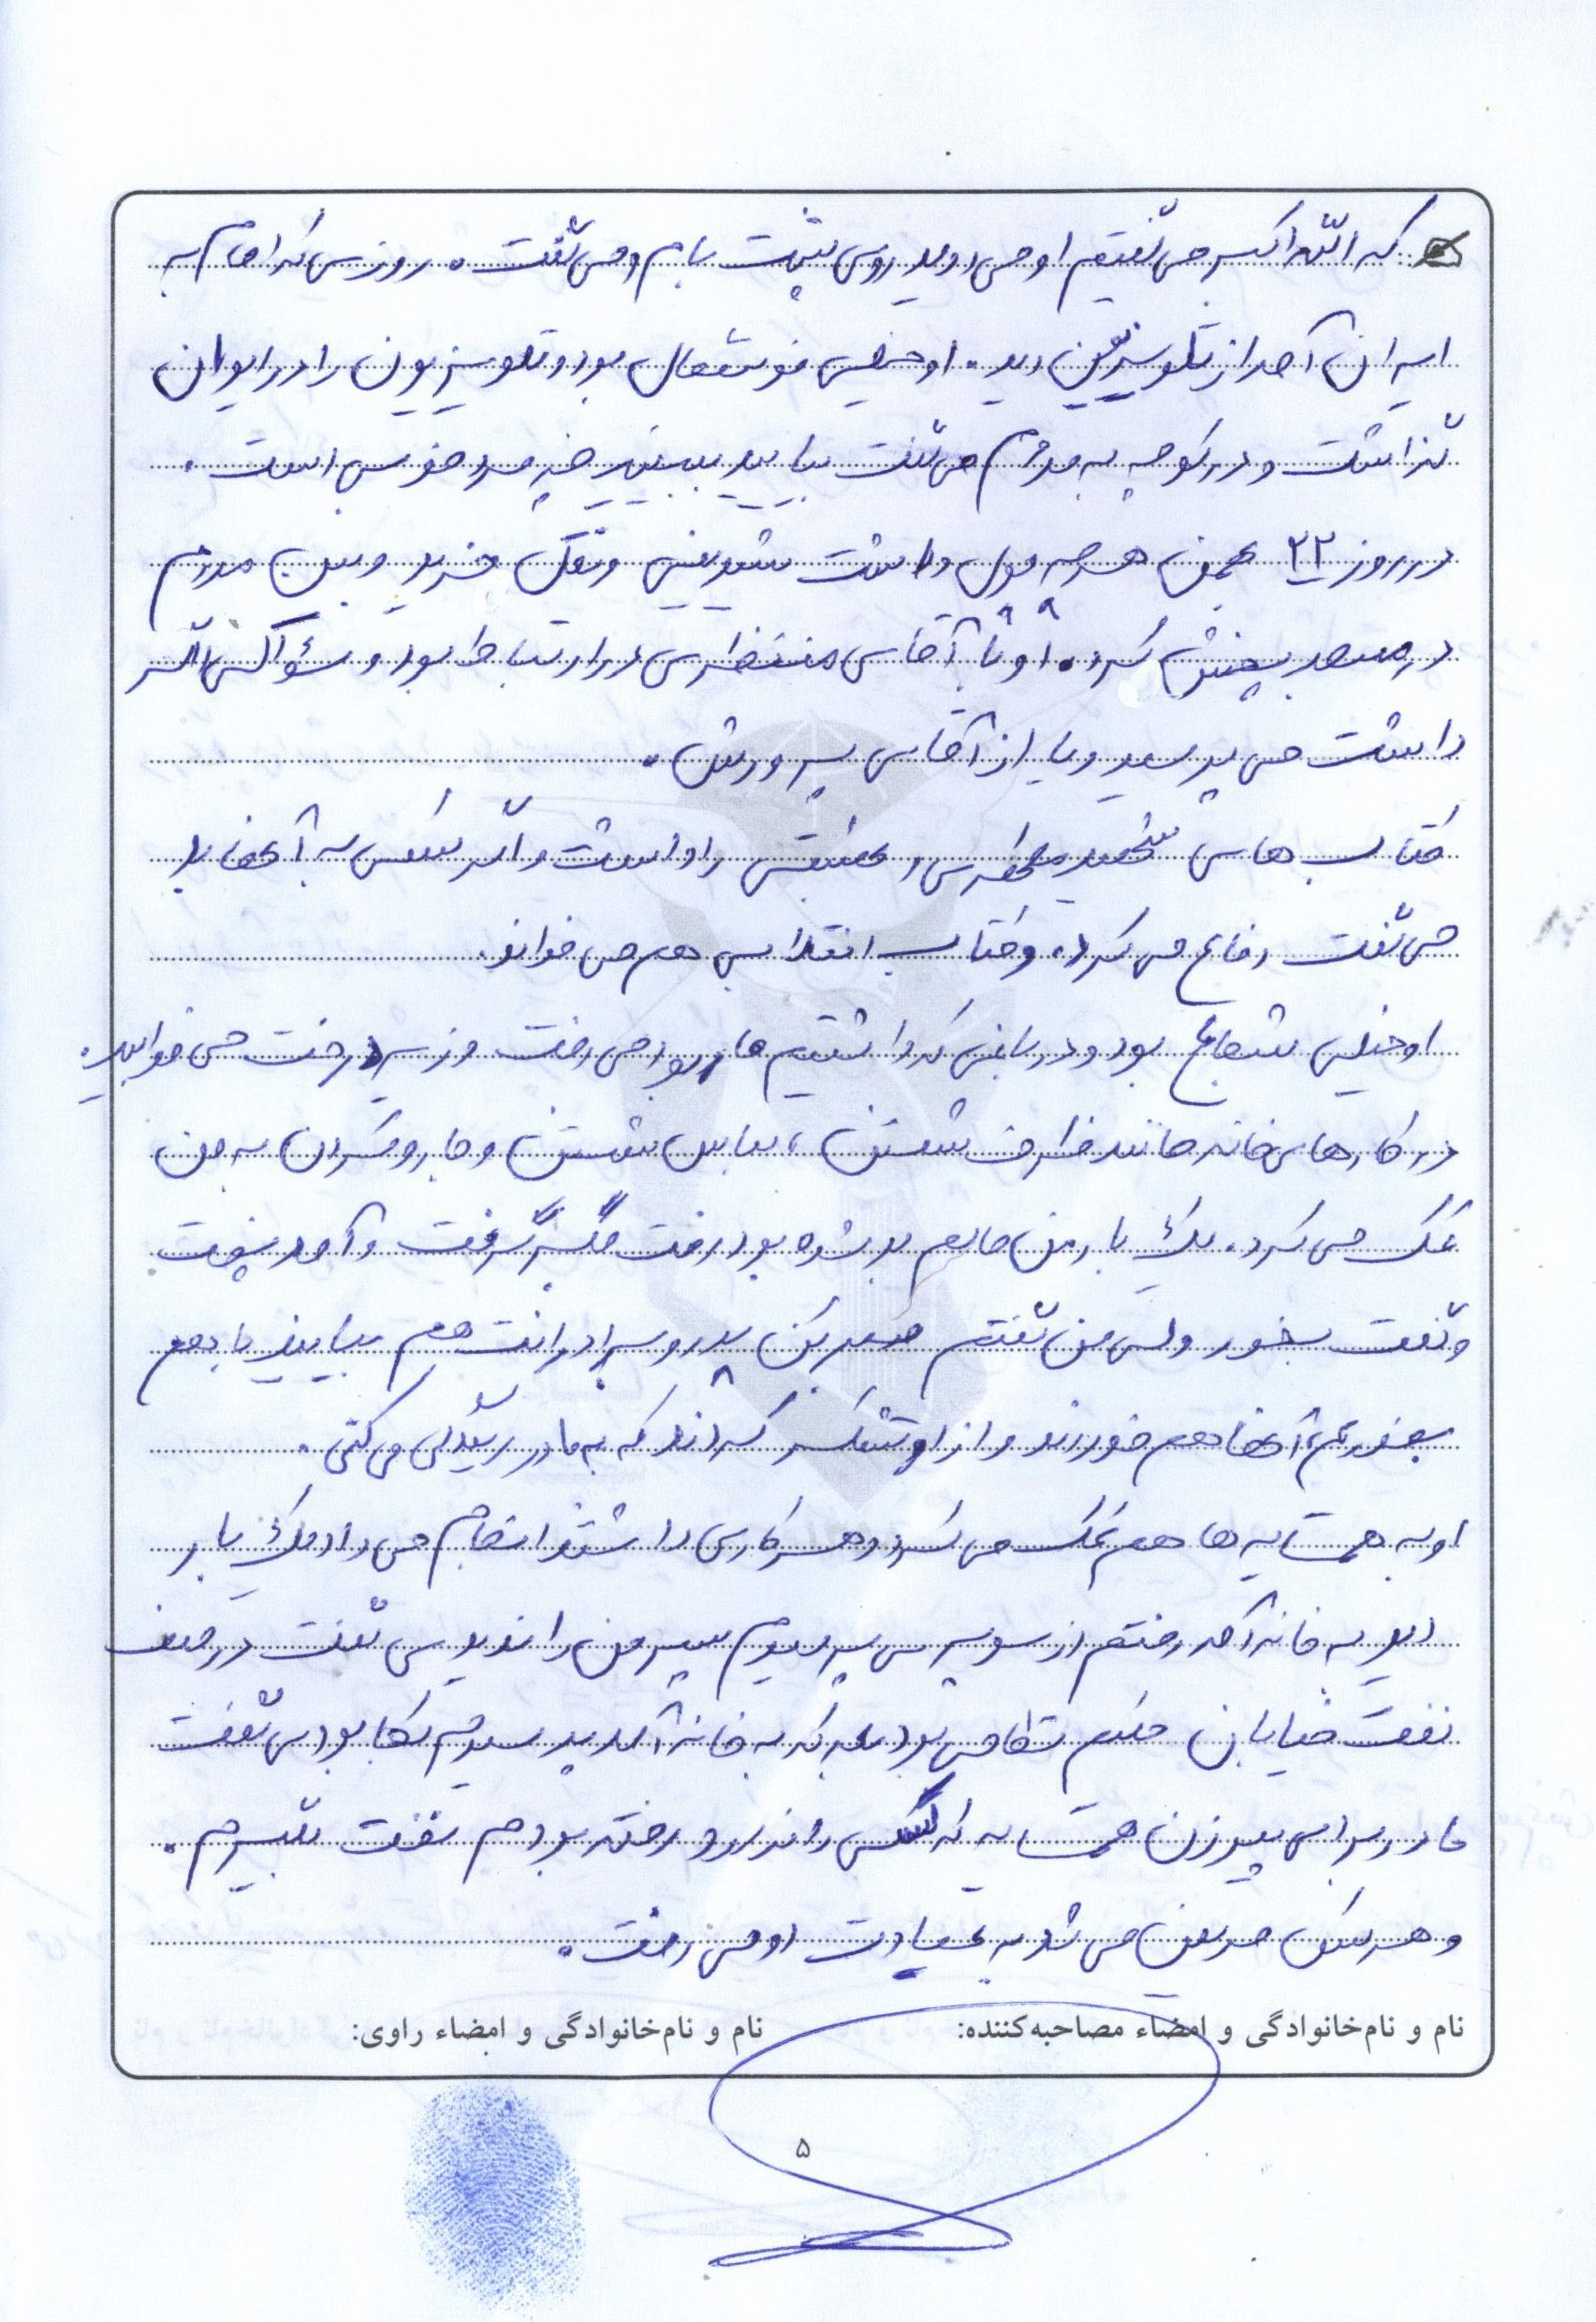 که الله اکبر می گفتیم او می دوید روی پشت بام و می گفت. روزی که امام به
ایران آمد از تلویزیون دید. او خیلی خوشحال بود و تلویزیون را در ایوان
گذاشت و در کوچه به مردم می گفت بیایید ببینید چه مرد خوبی است.
در روز ۲۲ بهمن هر چه پول داشت شیرینی و نقل خرید و بین مردم
در مسجد پخش کرد. او با آقای منتظری در ارتباط بود و سؤالی اگر
داشت می پرسید و یا از آقای پرورش.
کتاب های شهید مطهری و بهشتی را داشت و اگر کسی به آنها بد
می گفت دفاع می کرد. و کتاب انقلابی هم می خواند.
او خیلی شجاع بود و در باغی که داشتیم مار بود می رفت و زیر درخت می خوابید.
در کارهای خانه مانند ظرف شستن، لباس شستن و جارو کردن به من
کمک می کرد. یک بار من حالم بد شده بود رفت جگر گرفت و آمد پخت
و گفت بخور ولی من گفتم صبر کن پدر و برادرانت هم بیایند با هم
بخوریم آنها هم خوردند و از او تشکر کردند که به مادر رسیدگی می کنی.
او به همسایه ها هم کمک می کرد و هر کاری داشتند انجام می داد یک بار
دیر به خانه آمد رفتم از سوپری پرسیدم پسر من را ندیدی گفت در صف
نفت خیابان حکیم نظامی بود بعد که به خانه آمد پرسیدم کجا بودی گفت
مادر برای پیرزن همسایه که کسی را ندارد رفته بودم نفت بگیرم.
و هر کس مریض می شد به عیادت او می رفت.
نام و نام‌خانوادگی و امضاء مصاحبه‌کننده: نام و نام‌خانوادگی و امضاء راوی:
۵